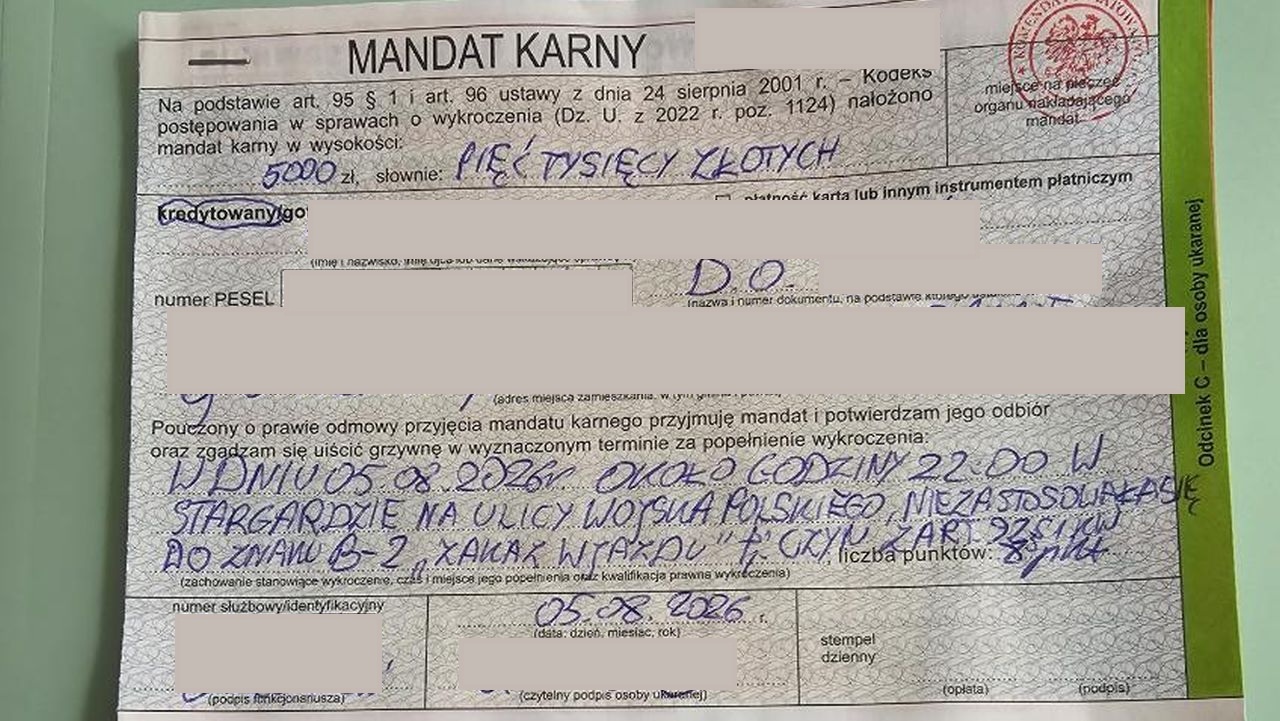 MANDAT KARNY
Na podstawie art. 95 § 1 i art. 96 ustawy z dnia 24 sierpnia 2001 r. – Kodeks
postępowania w sprawach o wykroczenia (Dz. U. z 2022 r. poz. 1124) nałożono
mandat karny w wysokości:
miejsce na pieczęć
organu nakładającego
mandat
5000 zł, słownie: PIĘĆ TYSIĘCY ZŁOTYCH
płatność kartą lub innym instrumentem płatniczym
kredytowany/go
numer PESEL
D.O.
(nazwa i numer dokumentu, na podstawie którego
(adres miejsca zamieszkania, w tym
Pouczony o prawie odmowy przyjęcia mandatu karnego przyjmuję mandat i potwierdzam jego odbiór
oraz zgadzam się uiścić grzywnę w wyznaczonym terminie za popełnienie wykroczenia:
W DNIU 05.08.2026r OKOŁO GODZINY 22.00 W
STARGARDZIE NA ULICY WOJSKA POLSKIEGO, NIEZASTOSOWAŁA SIĘ
DO ZNAKU B-2 „ZAKAZ WJAZDU" tj. CZYN Z ART 92§1KW, liczba punktów: 8 pkt
(zachowanie stanowiące wykroczenie, czas i miejsce jego popełnienia oraz kwalifikacja prawna wykroczenia)
numer służbowy/identyfikacyjny
(podpis funkcjonariusza)
05.08.2026 r.
(data: dzień, miesiąc, rok)
(czytelny podpis osoby ukaranej)
stempel
dzienny
(opłata) (podpis)
Odcinek C – dla osoby ukaranej